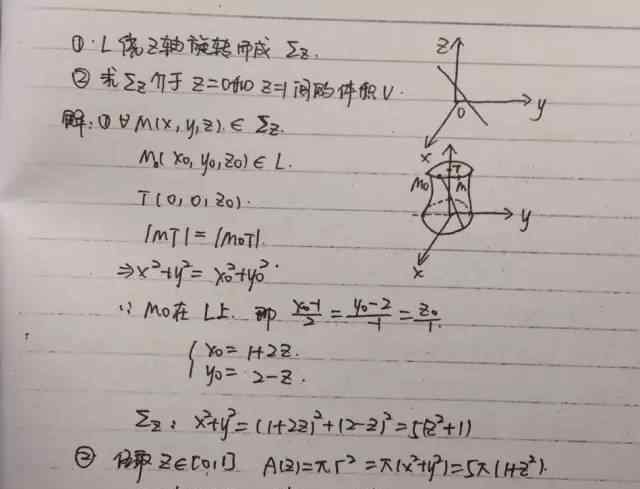 ①. L绕Z轴旋转而成 Σz.
② 求Σz介于 z=0和 z=1间的体积 V.
解: ① ∀ M(x, y, z) ∈ Σz.
M₀( x₀, y₀, z₀) ∈ L.
T ( 0, 0, z₀).
|MT| = |M₀T|.
⇒ x²+y² = x₀²+y₀².
∵ M₀在 L上. 即 (x₀-1)/2 = (y₀-2)/-1 = z₀/1.
{ x₀ = 1+2z.
y₀ = 2-z.
Σz: x²+y² = (1+2z)²+(2-z)² = 5(z²+1)
② 任取 z∈[0,1] A(z)=πr² = π(x²+y²)=5π(1+z²).
z
y
0
x
T
M₀
M
y
x